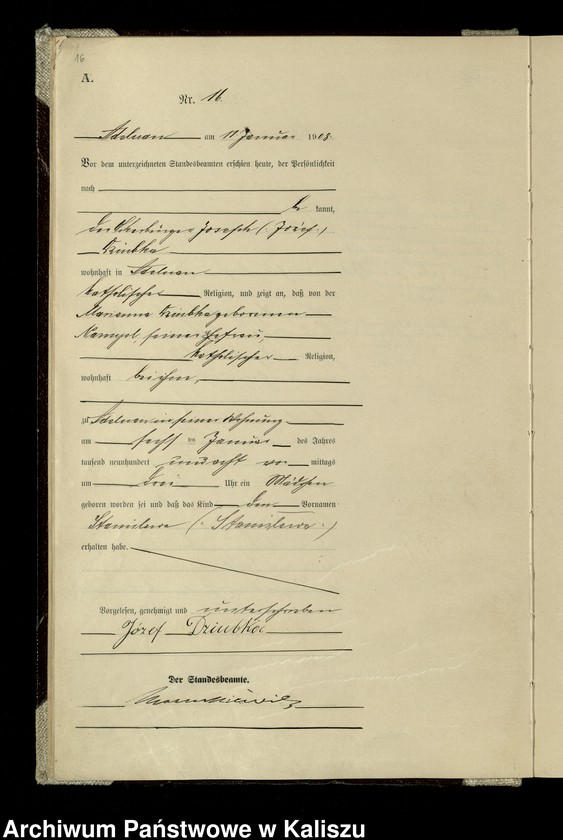 16
A.
Nr. 16.
Adelnau am 11 Januar 1908.
Vor dem unterzeichneten Standesbeamten erschien heute, der Persönlichkeit
nach
be kannt,
der Joseph (: Józef :)
Dziubka
wohnhaft in Adelnau
katholischer Religion, und zeigt an, daß von der
Marianna Dziubka geborenen
seiner Ehefrau,
katholischer Religion,
wohnhaft bei ihm,
zu Adelnau in seiner Wohnung
am sechsten Januar des Jahres
tausend neunhundert und acht vor mittags
um drei Uhr ein Mädchen
geboren worden sei und daß das Kind den Vornamen
Stanislawa (: Stanisława :)
erhalten habe.
Vorgelesen, genehmigt und unterschrieben
Józef Dziubka
Der Standesbeamte.
Archiwum Państwowe w Kaliszu